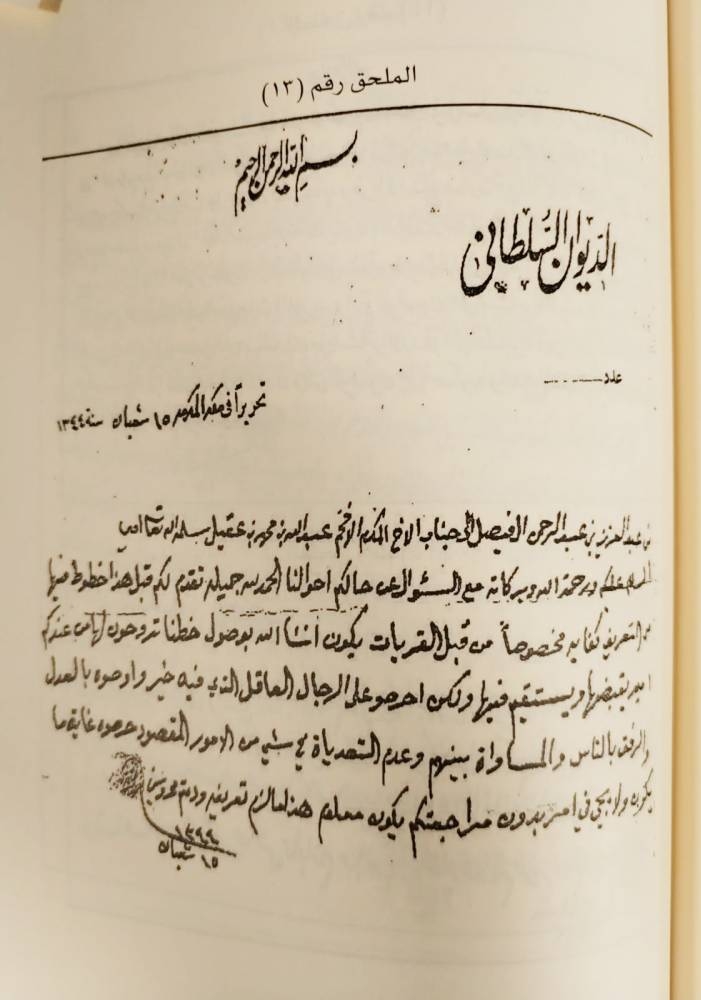 الملحق رقم (١٣)
بسم الله الرحمن الرحيم
الديوان السلطاني
عدد
تحريراً في مكة المكرمه ١٥ شعبان سنة ١٣٤٤
من عبد العزيز بن عبد الرحمن الفيصل الى جناب الاخ المكرم الافخم عبد الله بن محمد بن عقيل سلمه الله تعالى امين
السلام عليكم ورحمة الله وبركاته مع السئوال عن حالكم احوالنا الحمد لله جميله تقدم لكم قبل هذا خطوط فيها
من التعريف كفايه مخصوصاً من قبل القريات يكون انشاالله بوصول خطنا تدوحون لها من عندكم
امير يقبضها ويستقيم فيها ولكن احرصو على الرجال العاقل الذي فيه خير واوصوه بالعدل
والرفق بالناس والمساواة بينهم وعدم التعدياة في شي من الامور المقصود حرصوه غاية ما
يكون ولا يجي في امر بدون مراجعتكم يكون معلوم هذا مالزم تعريفه ودمتم محروسين
١٥ شعبان ١٣٤٤